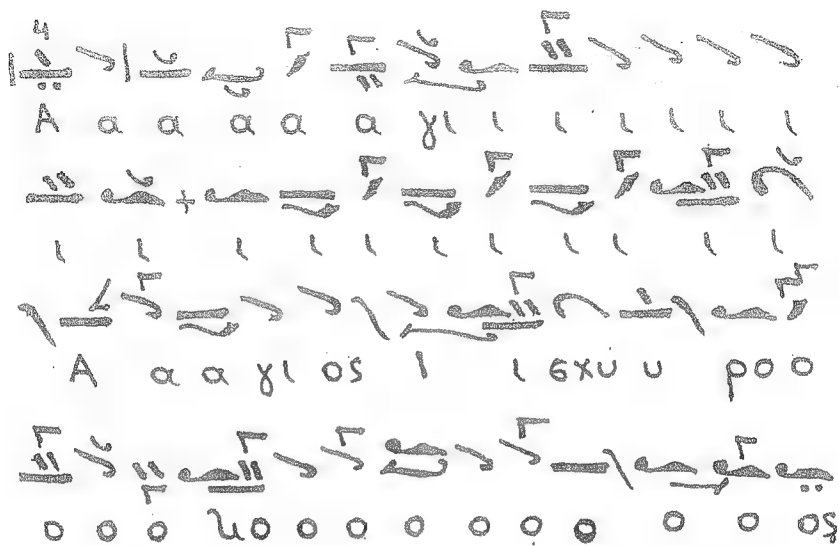 Α α α α α α γι ι ι ι ι ι ι
ι ι ι ι ι ι ι ι ι ι ι
Α α α γι ος ι ι εχυ υ ρο ο
ο ο ο ο ο ο ο ο ο ο ο ο ος